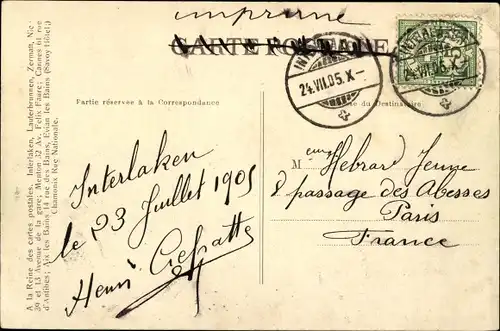 imprimé
CARTE POSTALE
INTERLAKEN
24.VII.05.X-
24.VII.05.X-
Partie réservée à la Correspondance
se du Destinataire
A la Reine des cartes postales. Interlaken, Lauterbrunnen, Zermatt, Nic-
39 et 13 Avenue de la gare; Menton 32 Av. Felix Flaure; Cannes 61 rue
d'Antibes; Aix les Bains 14 rue des Bains, Evian les Bains (Savoy Hôtel;)
Chamonix Rue Nationale.
Interlaken
le 23 Juillet 1905
Henri
M eur Hébrard Jeune
8 passage des Abesses
Paris
France